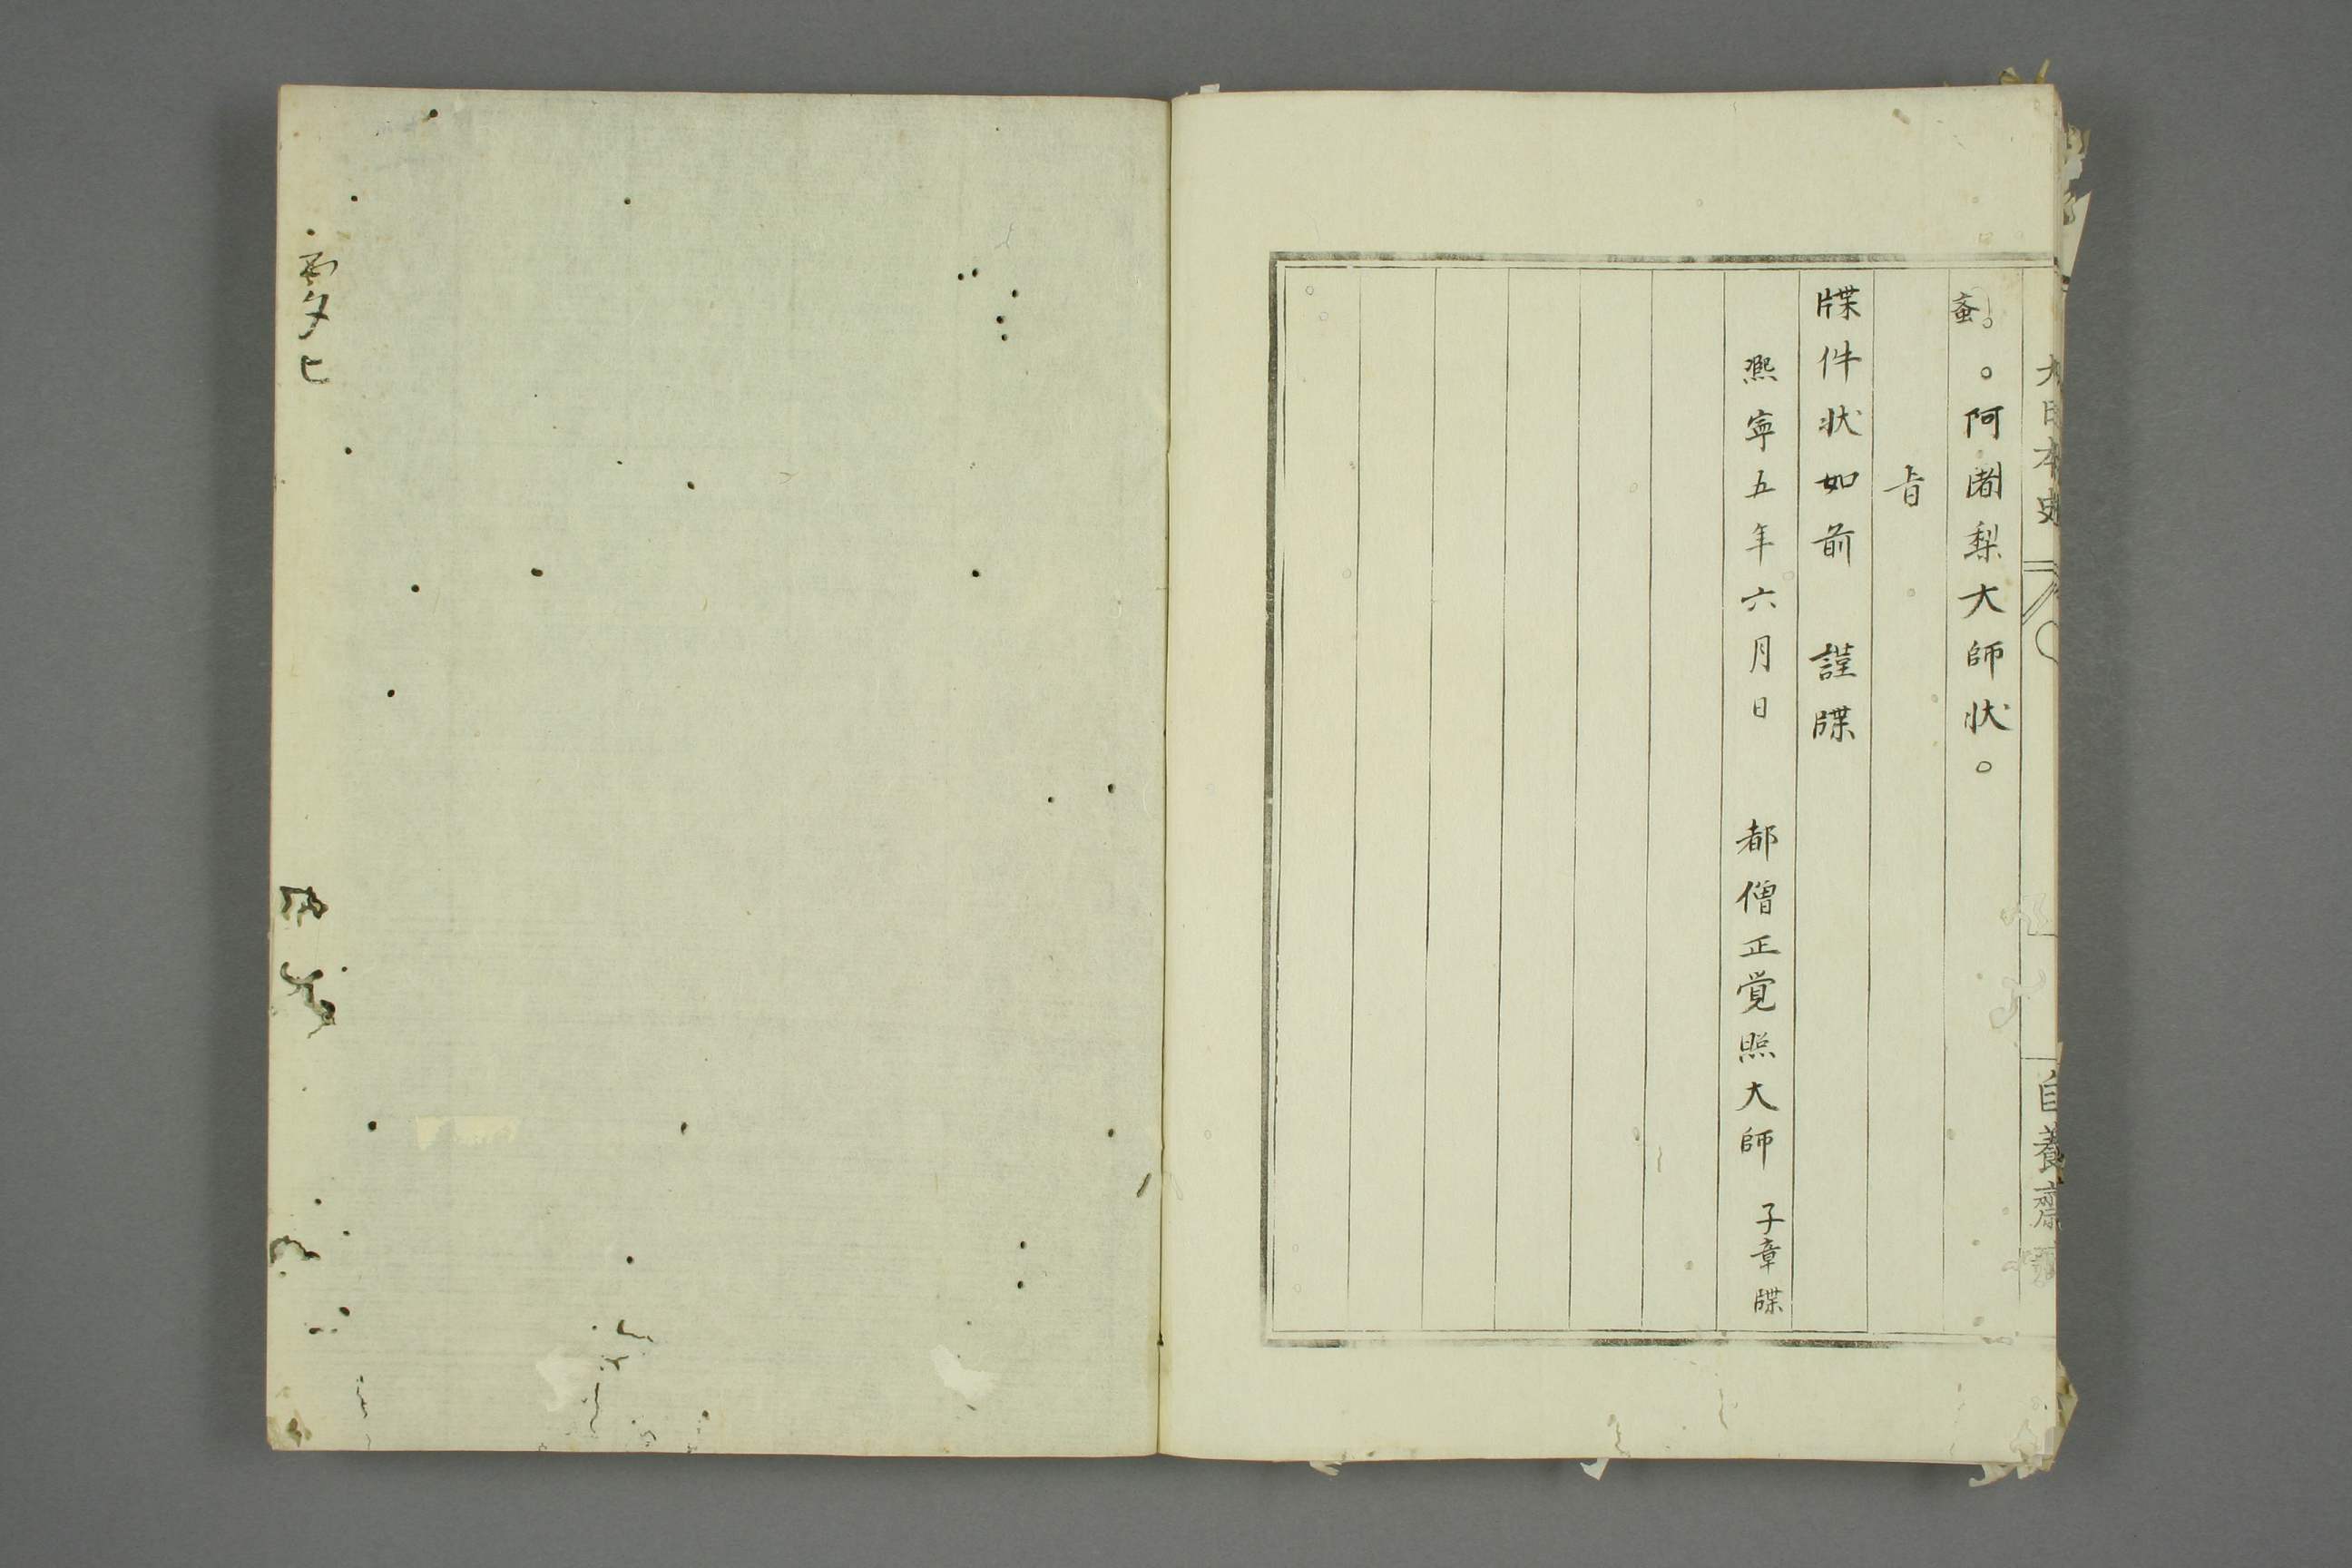 大日本史
自養齋
蚕。。阿闍梨大師状。
㫖
牒件状如前　謹牒
熙寧五年六月日　都僧正覚照大師　子章牒